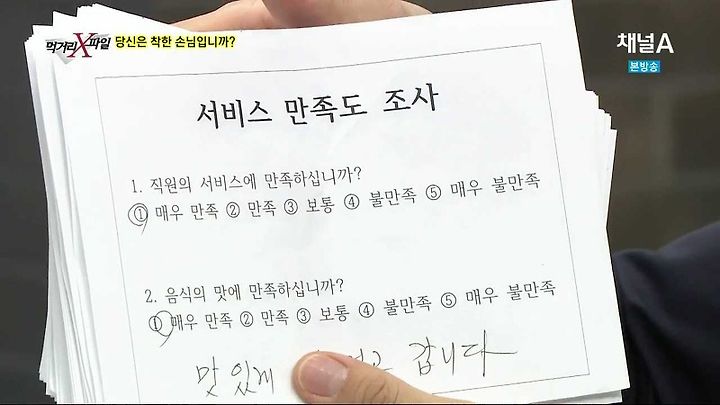 먹거리X파일 당신은 착한 손님입니까?
채널A
본방송
서비스 만족도 조사
1. 직원의 서비스에 만족하십니까?
① 매우 만족 ② 만족 ③ 보통 ④ 불만족 ⑤ 매우 불만족
2. 음식의 맛에 만족하십니까?
① 매우 만족 ② 만족 ③ 보통 ④ 불만족 ⑤ 매우 불만족
맛있게 갑니다